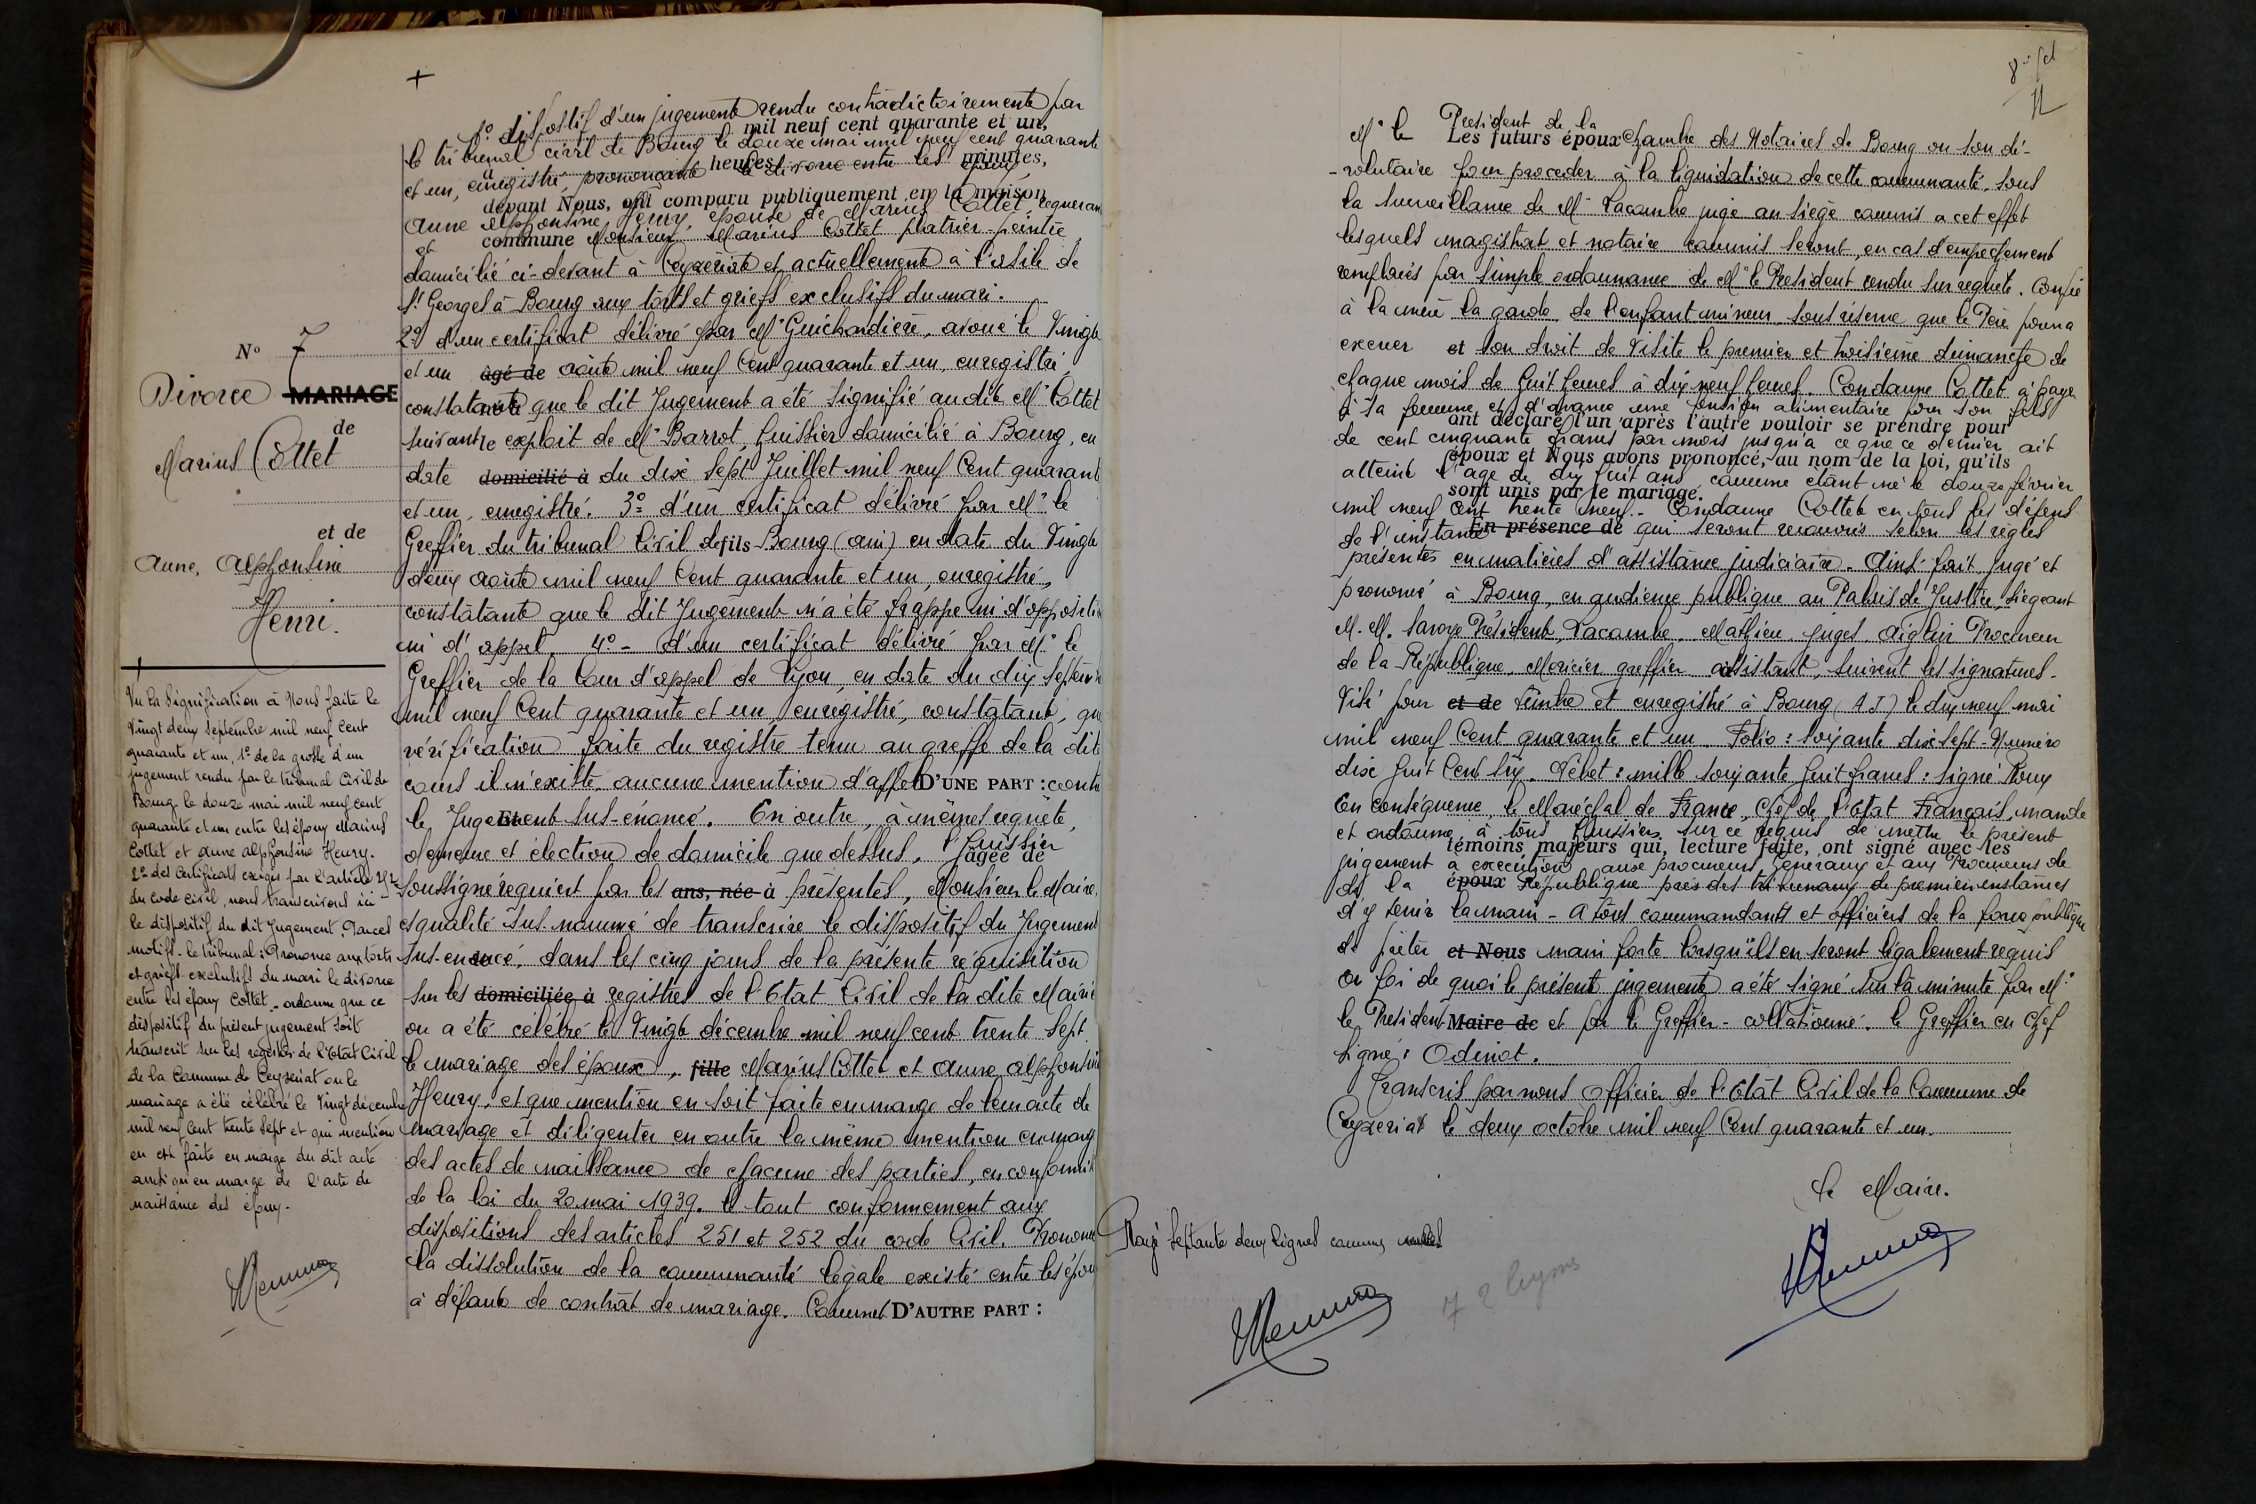 N° 7
Divorce MARIAGE
de
Marius Cottet
et de
Anne, Alphonsine
Henri.
Vu la signification à Nous faite le
Vingt deux septembre mil neuf cent
quarante et un, 1° de la grosse d'un
jugement rendu par le tribunal civil de
Bourg le douze mai mil neuf cent
quarante et un entre les époux Marius
Cottet et Anne Alphonsine Henry.
2° des certificats exigés par l'article
du code civil, nous transcrivons ici
le dispositif du dit Jugement. Par ces
motifs. le tribunal : Prononce aux torts
et griefs exclusifs du mari le divorce
entre les époux Cottet. ordonne que ce
dispositif du présent jugement soit
transcrit sur les registres de l'Etat Civil
de la Commune de Ceyzeriat ou le
mariage a été célébré le Vingt décembre
mil neuf cent trente sept et qui mention
en est faite en marge du dit acte
ainsi qu'en marge de l'acte de
naissance des époux.
1° dispositif d'un jugement rendu contradictoirement par
mil neuf cent quarante et un,
le tribunal civil de Bourg le douze mai mil neuf cent quarante
à heures minutes,
et un, enregistré, prononçant le divorce entre les époux,
devant Nous, ont comparu publiquement en la maison
Anne Alphonsine Henry, épouse de Marius Cottet requerant
commune
et Monsieur Marius Cottet platrier-peintre
domicilié ci-devant à Ceyzeriat et actuellement à l'asile de
St Georges à Bourg aux torts et griefs exclusifs du mari.
2° d'un certificat délivré par Me Guichardière, avoué le Vingt
et un âgé de août mil neuf Cent quarante et un, enregistré,
constatant que le dit Jugement a été signifié au dit Mr Cottet
suivant exploit de Me Barrot, huissier domicilié à Bourg, en
date domicilié à du dix sept Juillet mil neuf Cent quarante
et un, enregistré. 3° d'un certificat délivré par Mr le
Greffier du tribunal Civil de fils Bourg (ain) en date du Vingt
deux août mil neuf Cent quarante et un, enregistré,
constatant que le dit Jugement n'a été frappé ni d'opposition
ni d'appel. 4° - d'un certificat délivré par Mr le
Greffier de la Cour d'appel de Lyon, en date du dix septembre
mil neuf Cent quarante et un, enregistré, constatant, que
vérification faite du registre tenu au greffe de la dite
cours il n'existe aucune mention d'appel D'UNE PART : contre
le Jugement Et sus-énoncé. En outre, à mêmes requête,
demeure et élection de domicile que dessus. l'huissier
âgée de
soussigné requiert par les ans, née à présentes, Monsieur le Maire,
esqualité sus-nommé de transcrire le dispositif du Jugement
sus-énoncé, dans les cinq jours de la présente réquisition
sur les domiciliée à registres de l'Etat Civil de la dite Mairie
ou a été célébré le Vingt décembre mil neuf cent trente sept
le mariage des époux, fille Marius Cottet et Anne Alphonsine
Henry, et que mention en soit faite en marge de l'acte de
mariage et diligenter en outre la même mention en marge
des actes de naissance de chacune des parties, en conformité
de la loi du 20 mai 1939. le tout conformement aux
dispositions des articles 251 et 252 du code Civil. Prononce
la dissolution de la communauté légale existé entre les époux
à défaut de contrat de mariage. Commet D'AUTRE PART :
Mr le President de la
Les futurs époux Chambre des Notaires de Bourg ou son dé-
-volutaire pour proceder à la liquidation de cette communauté, sous
la surveillance de Mr Lacombe juge au siège commis a cet effet
lesquels magistrat et notaire commis seront, en cas d'empechement
remplacés par simple ordonnance de Mr le President rendu sur requete. Confie
à la mère la garde de l'enfant mineur sous réserve que le Père pourra
exercer et son droit de visite le premier et troisième dimanche de
chaque mois de huit heures à dix neuf heures. Condamne Cottet à payer
à sa femme et d'avance une pension alimentaire pour son fils
ont déclaré l'un après l'autre vouloir se prendre pour
de cent cinquante francs par mois jusqu'à ce que ce dernier ait
époux et Nous avons prononcé, au nom de la loi, qu'ils
atteint l'age de dix huit ans comme étant né le douze février
sont unis par le mariage.
mil neuf cent trente neuf. - Condamne Cottet en tous les dépens
En présence de
de l'instance qui seront recouvrés selon les règles
présentes en matières d'assistance judiciaire. Ainsi fait jugé et
prononcé à Bourg, en audience publique au Palais de Justice, siégeant
M. M. Savoye Président, Lacombe, Mathieu juges Procureur
de la République, Mercier greffier assistant, suivent les signatures.
Visé pour et de timbre et enregistré à Bourg (A J) le dix neuf mai
mil neuf Cent quarante et un Folio : soixante dix sept - Numéro
dix huit Cent six. Débet : mille soixante huit francs : signé Roux
En conséquence, le Maréchal de France, Chef de l'Etat Français, mande
et ordonne à tous huissiers sur ce requis de mettre le présent
témoins majeurs qui, lecture faite, ont signé avec les
jugement à execution aux procureurs Généraux et aux Procureurs de
de la époux République près des tribunaux de premier instances
d'y tenir la main - A tous commandants et officiers de la force publique
de prêter et Nous main forte lorsqu'ils en seront légalement requis
en foi de quoi le présent jugement a été signé sur la minute par Mr
le President Maire de et par le Greffier - collationné. le Greffier en Chef
Signé : Odinot.
Transcris par nous Officier de l'Etat Civil de la Commune de
Ceyzeriat le deux octobre mil neuf Cent quarante et un.
Le Maire.
Rayé septante deux lignes comme nulles
72 lignes